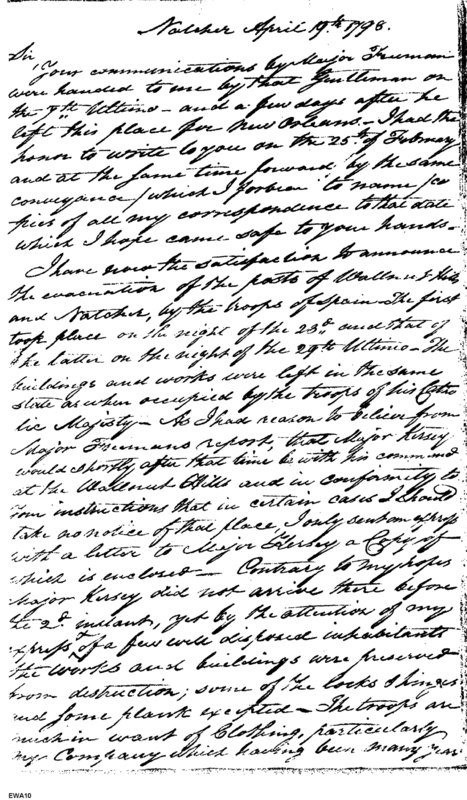 Natchez April 19.th 1798.
Sir,
Your communications by Major Freeman
were handed to me by that Gentleman on
the 7th Ultimo - and a few days after he
left this place for New Orleans. - I had the
honor to write to you on the 25th of February
and at the same time forward by the same
conveyance (which I forbear to name) co
pies of all my correspondence to that date
which I hope came safe to your hands -
I have now the satisfaction to announce
the evacuation of the posts of Wallnut Hills,
and Natchez, by the troops of Spain - The first
took place on the night of the 23d and that of
the latter on the night of the 29th Ultimo - The
buildings and works were left in the same
state as when occupied by the troops of his Catho
lic Majesty - As I had reason to believe from
Major Freemans report, that Major Kersey
would shortly after that time be with his command
at the Wallnut Hills and in conformity to
your instructions that in certain cases I should
take no notice of that place, I only sent an express
with a letter to Major Kersey a Copy of
which is enclosed - Contrary to my hopes
Major Kersey did not arrive there before
the 2d instant, yet by the attention of my
express, & of a few well disposed inhabitants
the works and buildings were preserved
from destruction; some of the locks & hinges
and some plank excepted - The troops are
much in want of Clothing, particularly
my Company which having been many years
EWA10